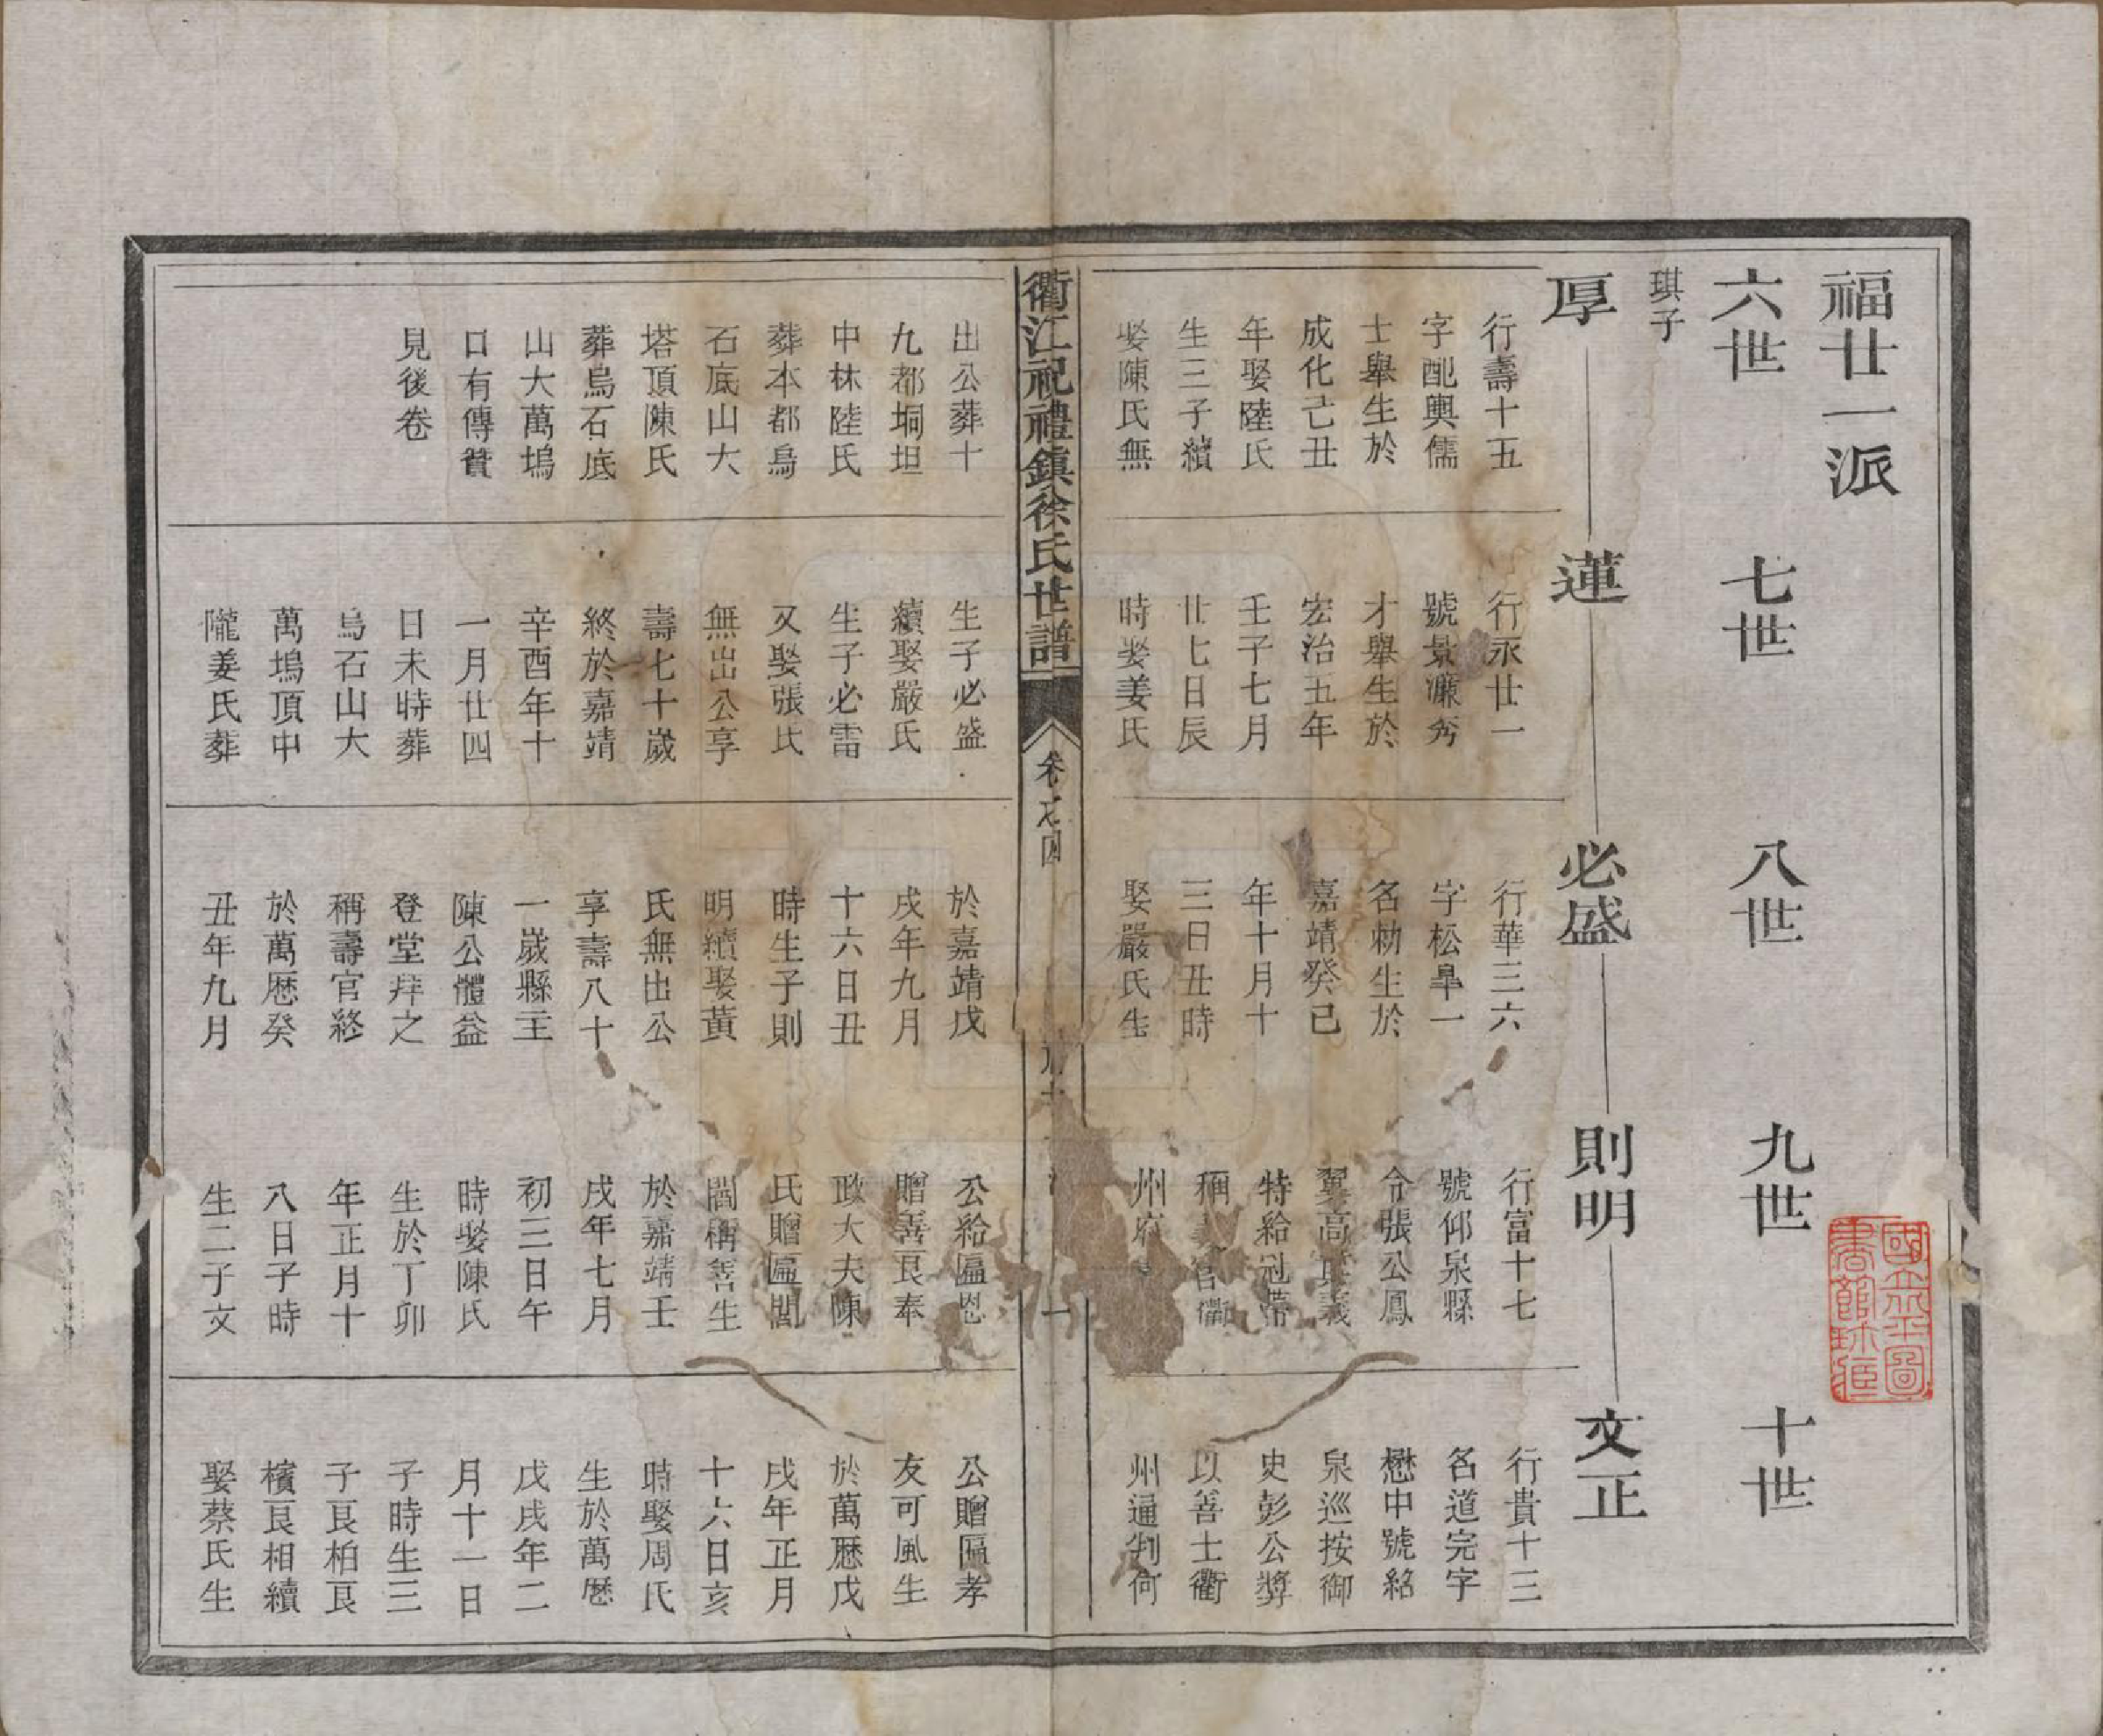 福廿一派
六世
七世
八世
九世
十世
琪子
厚
蓮
必盛
則明
文正
行壽十五
字配輿儒
士舉生於
成化己丑
年娶陸氏
生三子續
娶陳氏無
出公葬十
九都垌坦
中林陸氏
葬本都烏
石底山大
塔頂陳氏
葬烏石底
山大萬塢
口有傳贊
見後卷
行永廿一
號景濂秀
才舉生於
宏治五年
壬子七月
廿七日辰
時娶姜氏
生子必盛
續娶嚴氏
生子必雷
又娶張氏
無出公享
壽七十歲
終於嘉靖
辛酉年十
一月廿四
日未時葬
烏石山大
萬塢頂中
隴姜氏葬
行華三六
字松臯一
名勑生於
嘉靖癸巳
年十月十
三日丑時
娶嚴氏生
於嘉靖戊
戌年九月
十六日丑
時生子則
明續娶黃
氏無出公
享壽八十
一歲縣主
陳公體益
登堂拜之
稱壽官終
於萬厯癸
丑年九月
行富十七
號仰泉縣
令張公鳳
翼高其義
特給冠帶
稱義官衢
州府
公給匾恩
贈善良奉
政大夫陳
氏贈匾閭
閻稱善生
於嘉靖壬
戌年七月
初三日午
時娶陳氏
生於丁卯
年正月十
八日子時
生二子文
行貴十三
名道完字
懋中號絡
泉巡按御
史彭公獎
以善士衢
州通判何
公贈匾孝
友可風生
於萬厯戊
戌年正月
十六日亥
時娶周氏
生於萬厯
戊戌年二
月十一日
子時生三
子良柏良
檳良相續
娶蔡氏生
衢江祝禮鎮徐氏世譜
卷之四
一
國立北平圖
書館珍藏